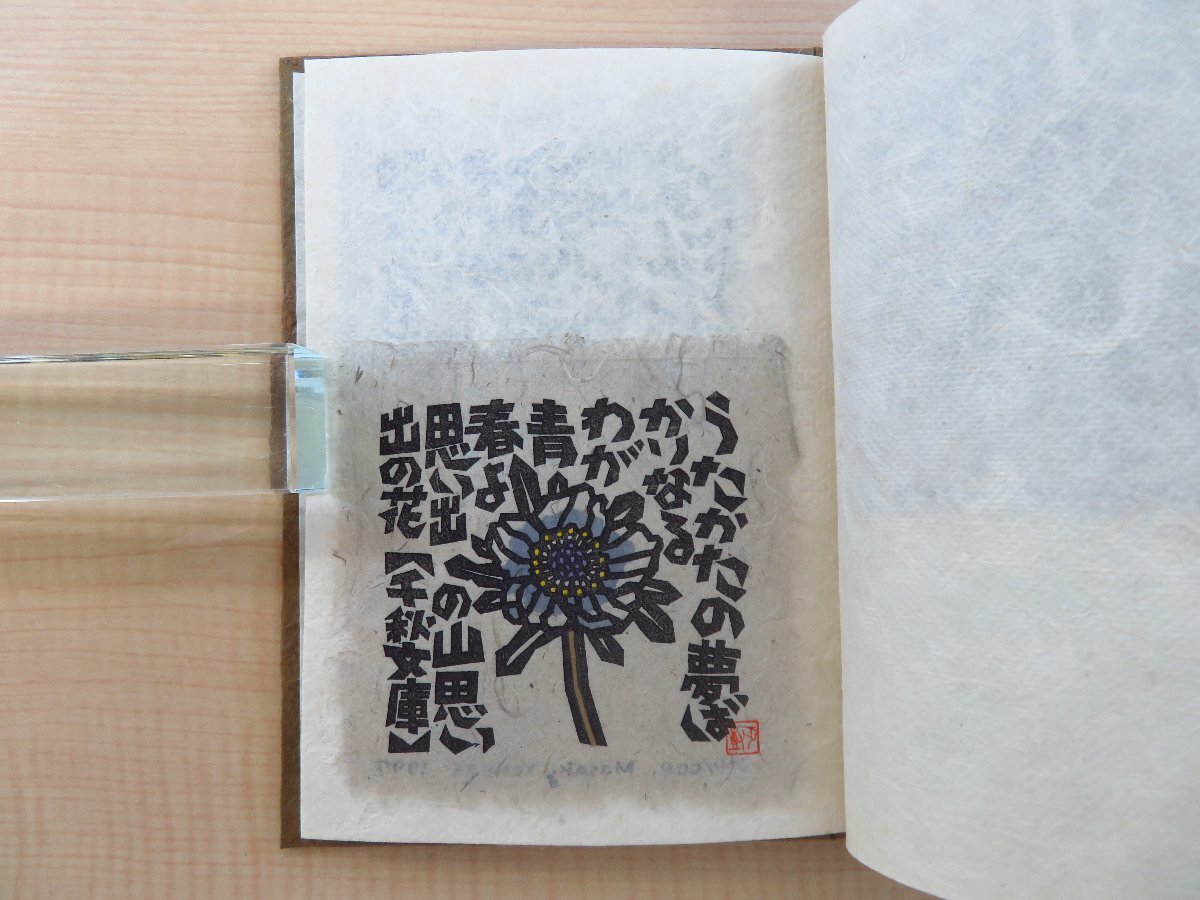 うたかたの夢ば
かりなる
わが
青
春よ
思い出の山思い
出の花【千秋文庫】